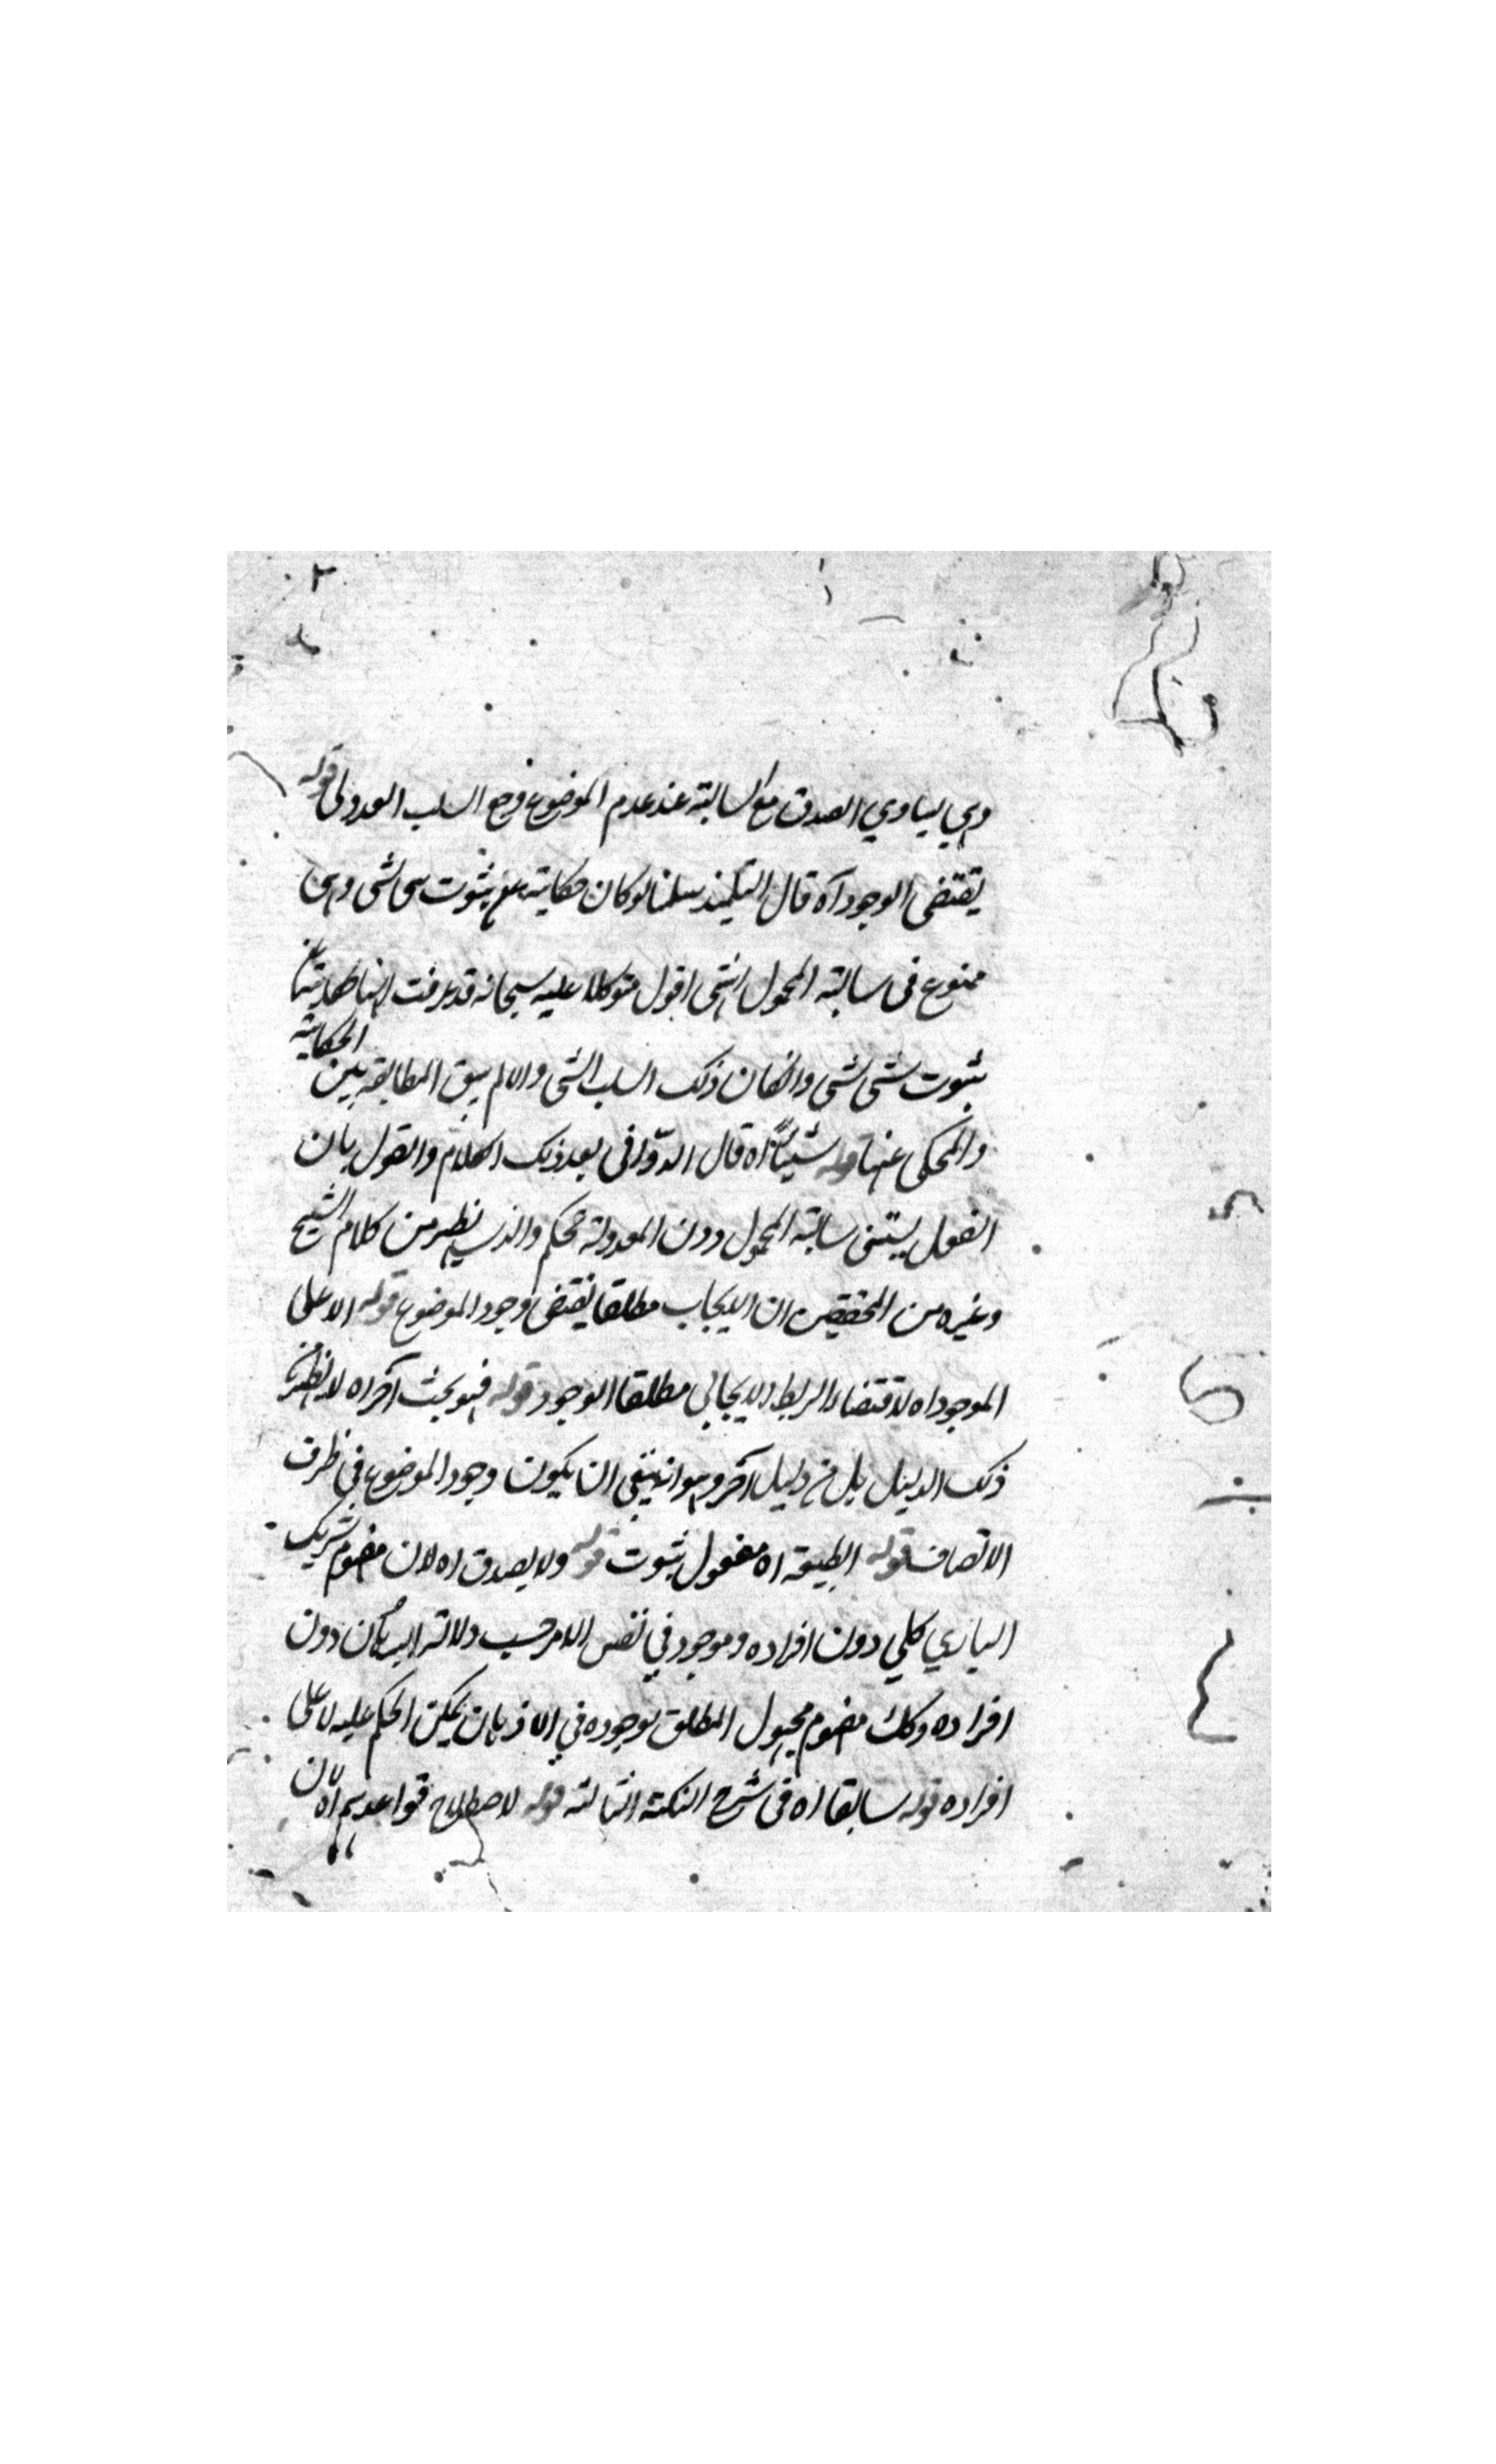 وهي يساوي الصدق مع السالبة عند عدم الموضوع وجع السلب العدولى قوله
يقتضى الوجود آه قال التلميذ سلمنا لو كان حكايته مع ثبوت شى لشى وهى
ممنوع فى سالبة المحمول انتهى اقول متوكلا عليه سبحانه قد عرفت انها
ثبوت شى لشى وانكان ذلك السلب الشى والا لم يبق المطابقة بين الحكاية
والمحكى عنها قوله شيئا اه قال الدوانى بعد ذلك الكلام والقول بان
العقل يستثنى سالبة المحمول دون المعدولة تحكم والذى يظهر من كلام الشيخ
وغيره من المحققين ان الايجاب مطلقا يقتضى وجود الموضوع قوله الا على
الموجود اه لاقتضاء الربط الايجابي مطلقا الوجود قوله فهو بحث آخر اه لا يظهر من
ذلك الدليل بل من دليل آخر وهو انه ينبغي ان يكون وجود الموضوع في ظرف
الاتصاف قوله الطبيعة اه مفعول ثبوت قوله ولا يصدق اه لان مفهوم شريك
الباري كلي دون افراده وموجود في نفس الامر حسب دلالة البرهان دون
افراده وكك مفهوم مجهول المطلق لوجوده في الاذهان يمكن الحكم عليه لا على
افراده قوله سابقا اه فى شرح النكتة الثالثة قوله لاصطلاح قواعدهم اه لان